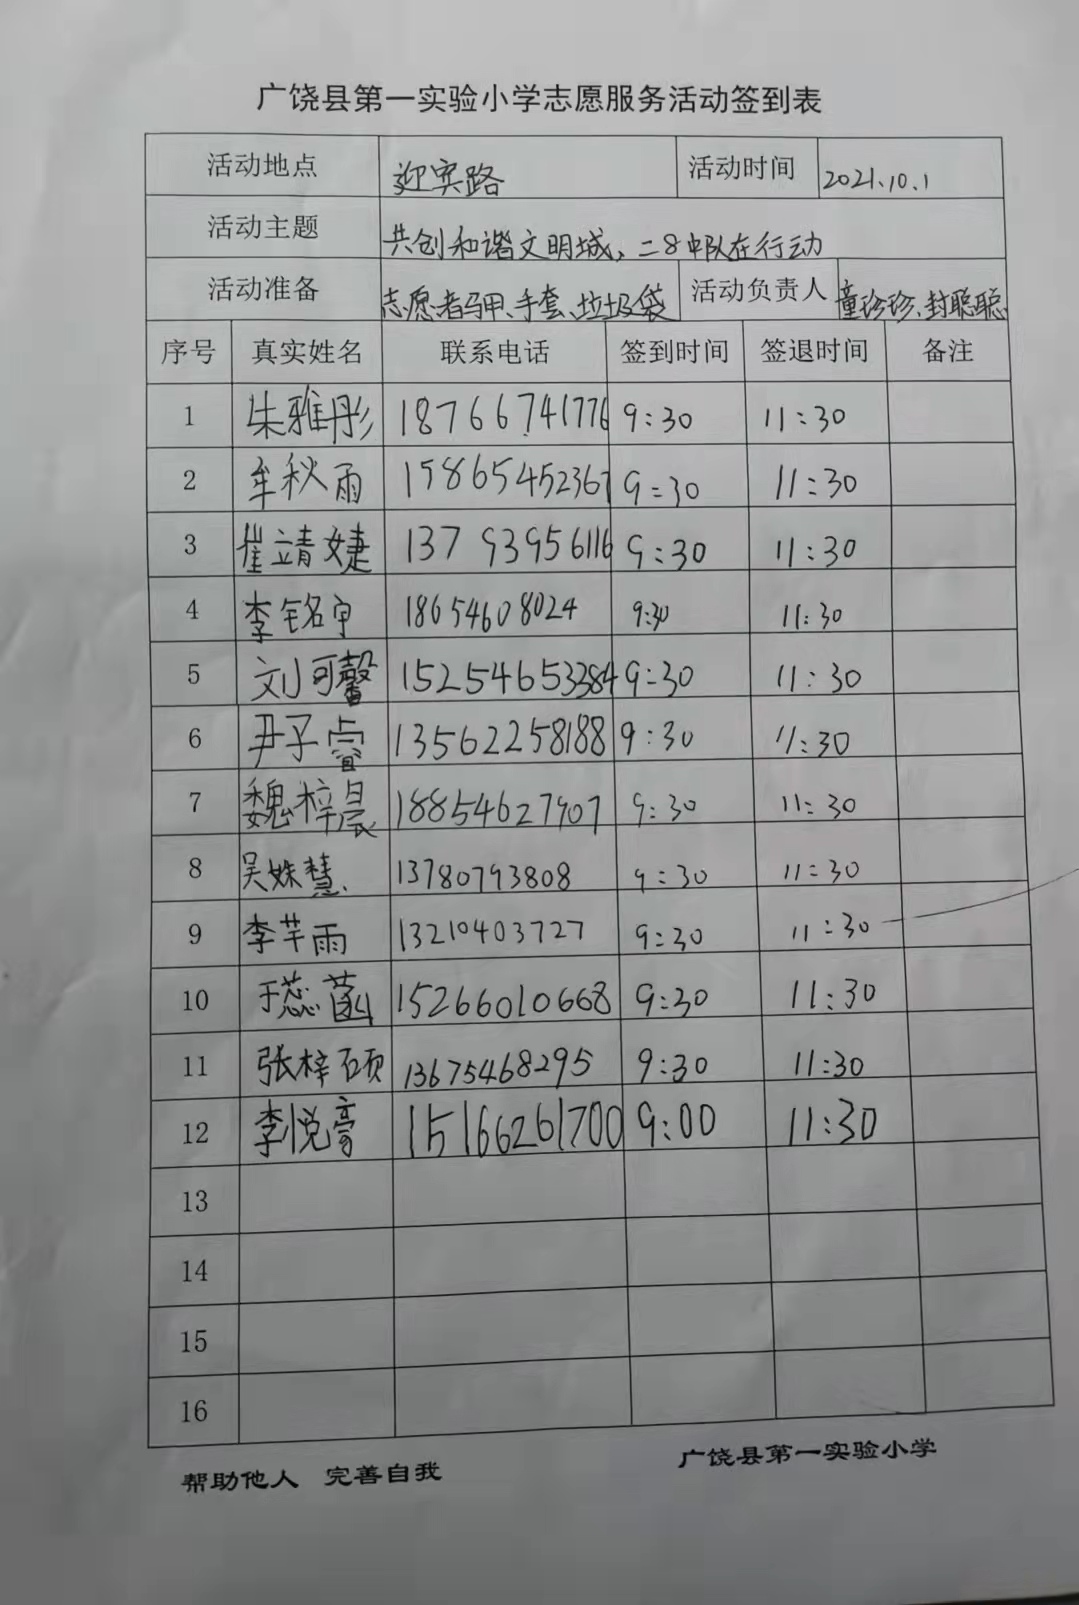 广饶县第一实验小学志愿服务活动签到表
活动地点 迎宾路 活动时间 2021.10.1
活动主题 共创和谐文明城，二8中队在行动
活动准备 志愿者马甲、手套、垃圾袋 活动负责人 童珍珍、封聪聪
序号 真实姓名 联系电话 签到时间 签退时间 备注
1 朱雅彤 18766741776 9:30 11:30
2 牟秋雨 15865452367 9:30 11:30
3 崔靖婕 13793956116 9:30 11:30
4 李铭宇 18654608024 9:30 11:30
5 刘可馨 15254653384 9:30 11:30
6 尹子睿 13562258188 9:30 11:30
7 魏梓晨 18854627907 9:30 11:30
8 吴姝慧 13780793808 9:30 11:30
9 李芊雨 13210403727 9:30 11:30
10 于蕊菡 15266010668 9:30 11:30
11 张梓硕 13675468295 9:30 11:30
12 李悦豪 15166261700 9:00 11:30
13
14
15
16
帮助他人 完善自我 广饶县第一实验小学